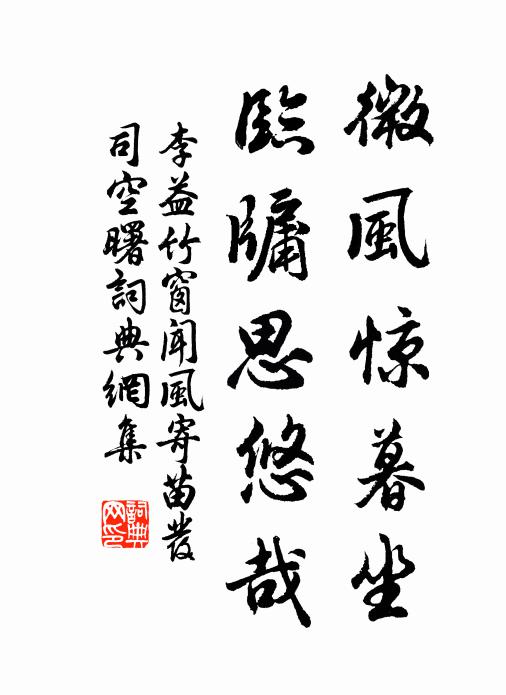 微風惊暮坐
臨牖思悠哉
李益竹窗聞風寄苗發
司空曙詞典網集
詞典
网印